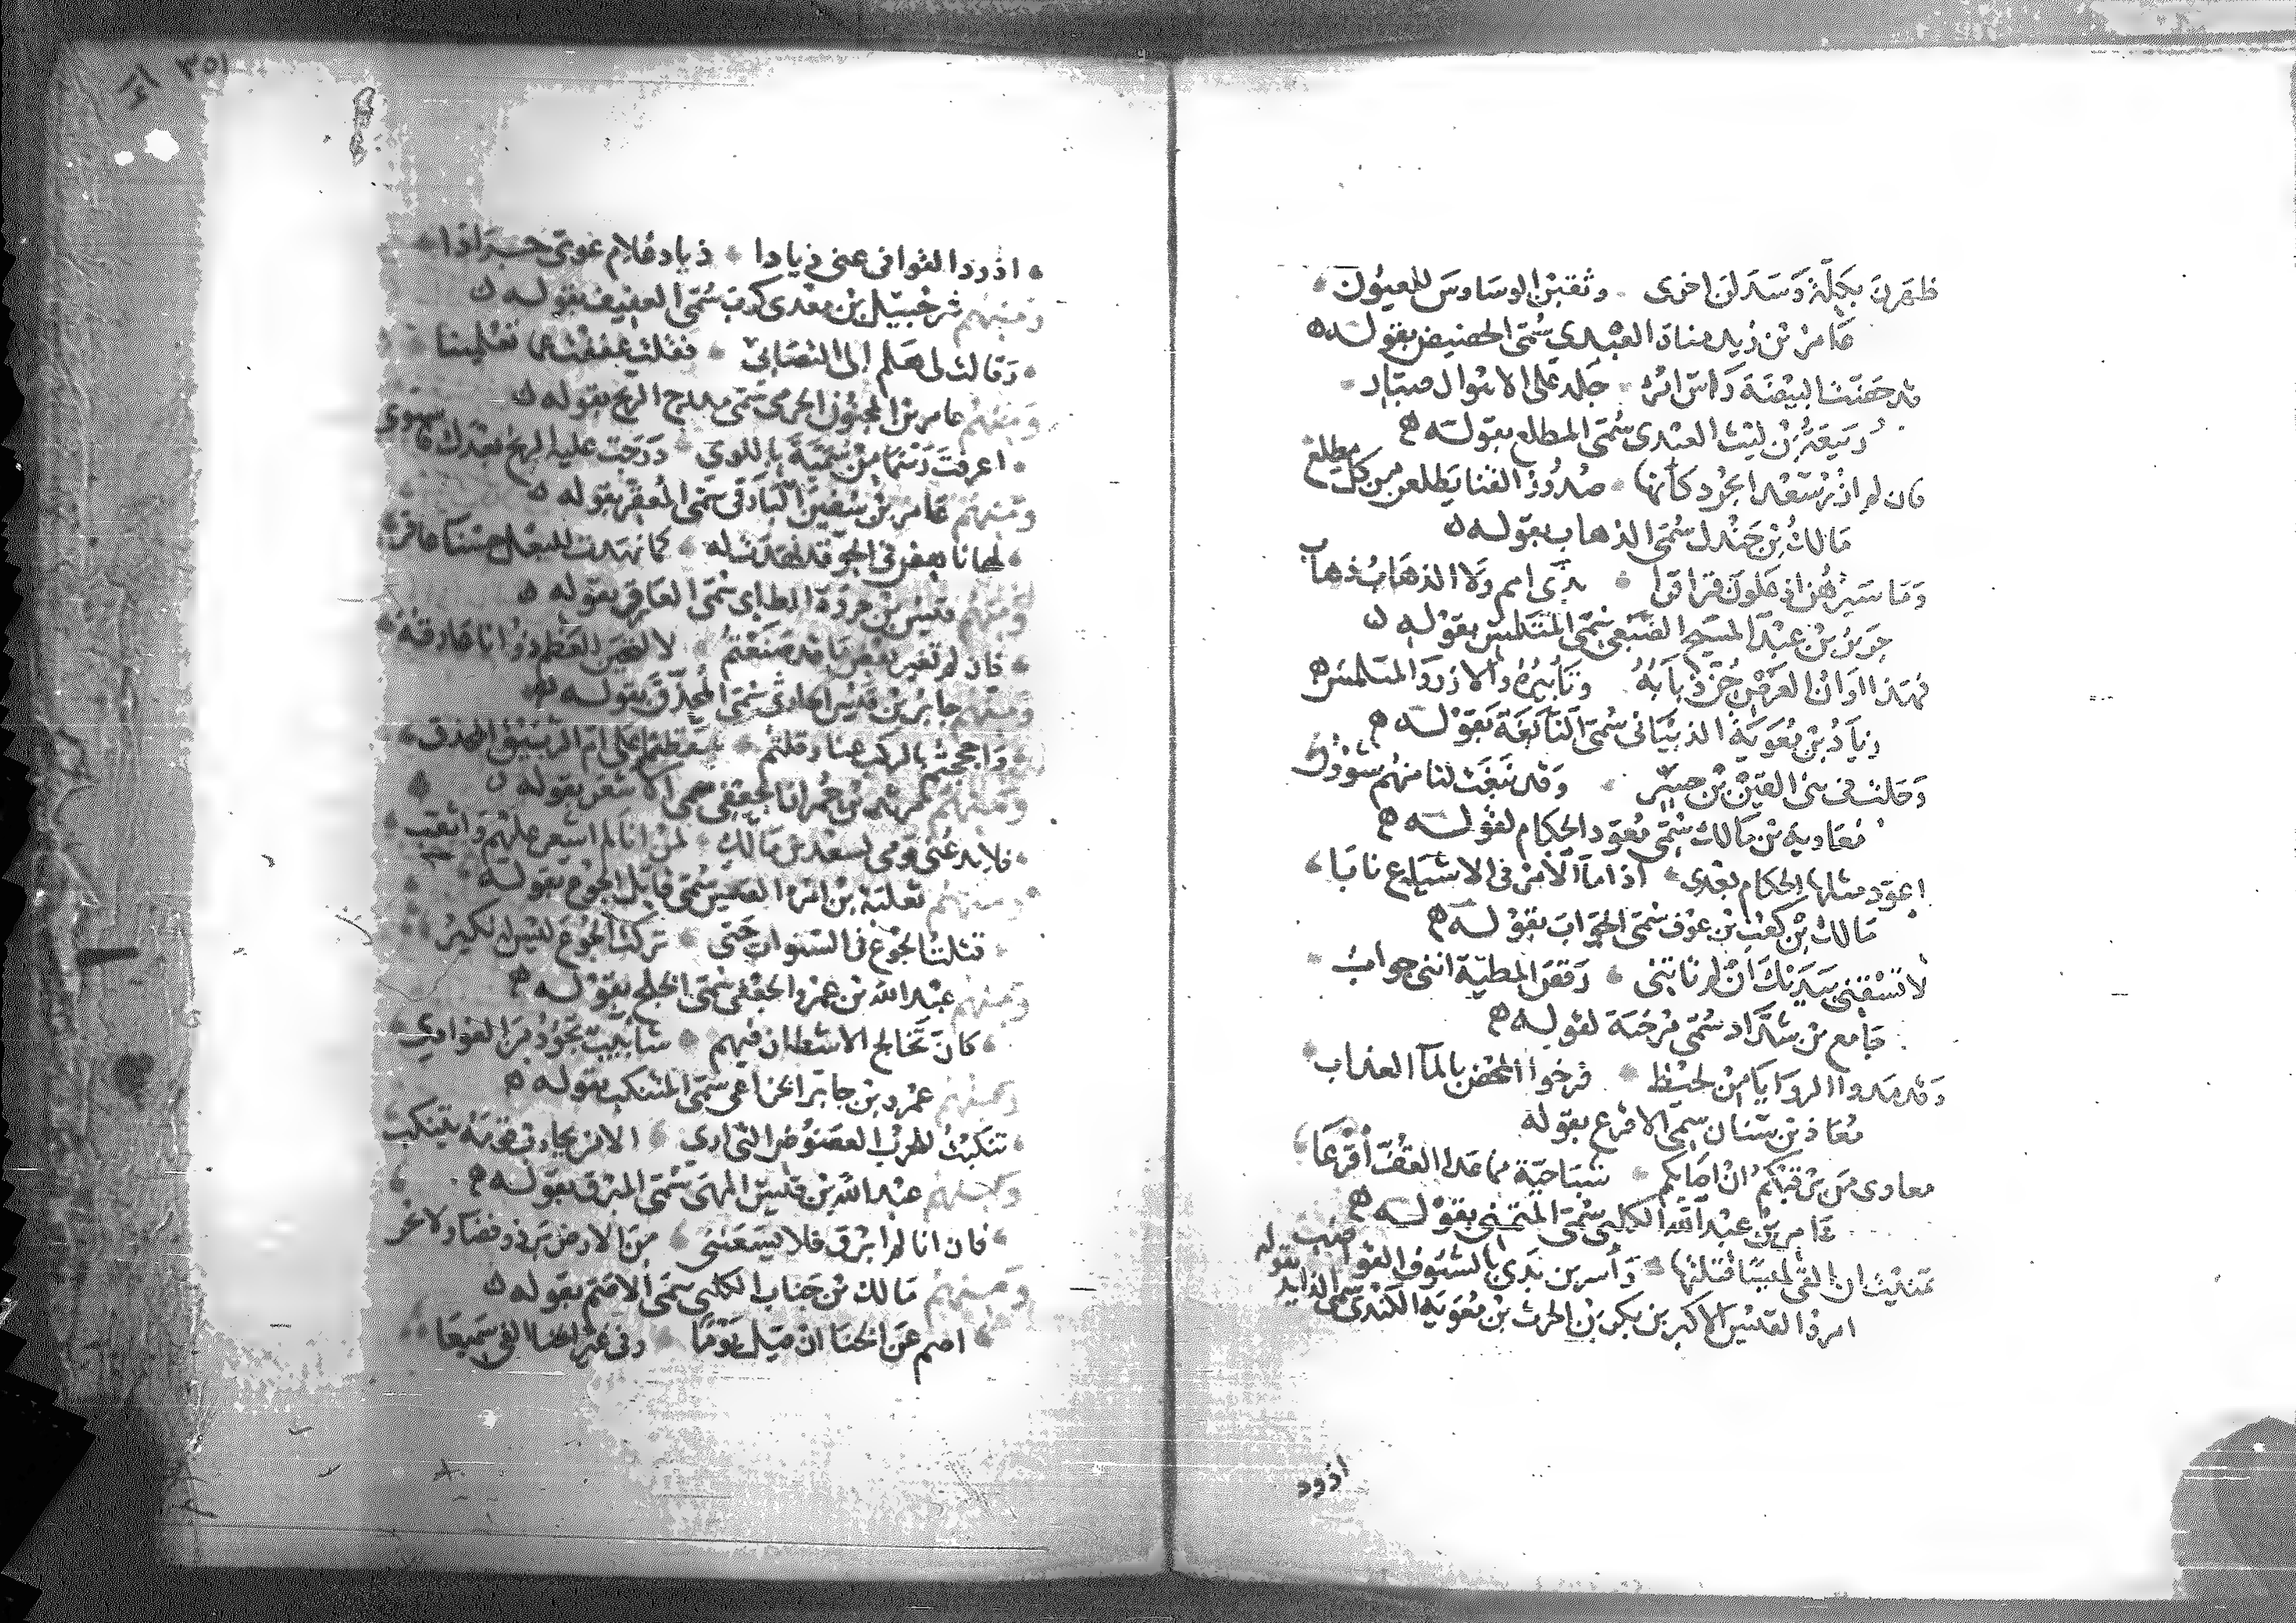 ظهرن بكلة وسدلن اخرى وثقبن الوساوس للعيون
عامر بن زيد مناة العبدى سمى الحصيص بقوله
قد حصت البيضة راس امرء جلد على الاهوال صبار
ربيعة بن ليث العبدى سمى المطلع بقوله
فان لم ازر سعدا بجرد كأنها صدور القنا يطلعن من كل مطلع
مالك بن جندل سمى الذهاب بقوله
وما سيرهن اذ علون قراقرا بذى امم ولا الذهاب ذهاب
جرير بن عبد المسيح الضبعى سمى المتلمس بقوله
فهذا اوان العرض جن ذبابه زنابيره والازرق المتلمس
زياد بن معوية الذبيانى سمى النابغة بقوله
وحلت فى بنى القين بن جسر وقد نبغت لنا منهم شؤون
معاوية بن مالك سمى معود الحكام لقوله
اعود مثلها الحكام بعدى اذا ما الامر فى الاشياع نابا
مالك بن كعب بن عوف سمى الجواب بقوله
لا تسقنى بيديك ان لم تاتنى رقص المطية اننى جواب
جامع بن شداد سمى مرخية لقوله
وقد مدوا الروايا من لحيظ فرخوا المحض بالماء العذاب
معاذ بن سنان سمى الاقرع بقوله
معاوى من يرقيكم ان اصابكم شبا حية مما عدا القف اقرعا
عامر بن عبد الله الكلبى سمى المتمنى بقوله
تمنيت ان القى لميسا فتلتها واسر بن بدى بالسيوف القواضب
امرؤ القيس الاكبر بن بكر بن الحرث بن معوية الكندى سمى الذايد بقوله
اذود
٣٥١
اذود القوافى عنى ذيادا ذياد غلام غوى جرادا
ومنهم شرحبيل بن معدى كرب سمى العفيف بقوله
وقالت لى هلم الى التصابى فقلت عففت عما تعلمينا
ومنهم عامر بن المجنون الجرمى سمى مدرج الريح بقوله
اعرفت رسما من سمية باللوى درجت عليه الريح بعدك فاستوى
ومنهم عامر بن سفين البارقى سمى المعقر بقوله
لها ناهض فى الجو قد مهدت له كما نهدت للبعل حسناء عاقر
ومنهم قيس بن جروة الطاى سمى العارق بقوله
فان لم تغير بعض ما قد صنعتم لانتحين للعظم ذو انا عارقه
ومنهم جابر بن قيس الحارثى سمى المحذق بقوله
ومنهم مرثد بن حمران الجعفى سمى الاشعر بقوله
فلا يدعنى قومى لسعد بن مالك لئن انا لم اشعر عليهم واثقب
ومنهم ثعلبة بن امرء القيس سمى قاتل الجوع بقوله
قتلت الجوع فى السنوات حتى تركت الجوع ليس له نكير
ومنهم عبد الله بن عمرو الجعفى سمى الخلج بقوله
كان تخالج الاشطان فيهم شآبيب تجود من الغوادى
ومنهم عمرو بن جابر الخزاعى سمى المتنكب بقوله
تنكبت للحرب العضوض التى ارى الا من يحارب قومه يتنكب
ومنهم عبد الله بن قيس السهمى سمى المبرق بقوله
فان انا لم ابرق فلا يسعننى من الارض بر ذو فضاء ولا بحر
ومنهم مالك بن جناب الكلبى سمى الاصم بقوله
اصم عن الخنا ان قيل يوما وفى غير الخنا الفى سميعا